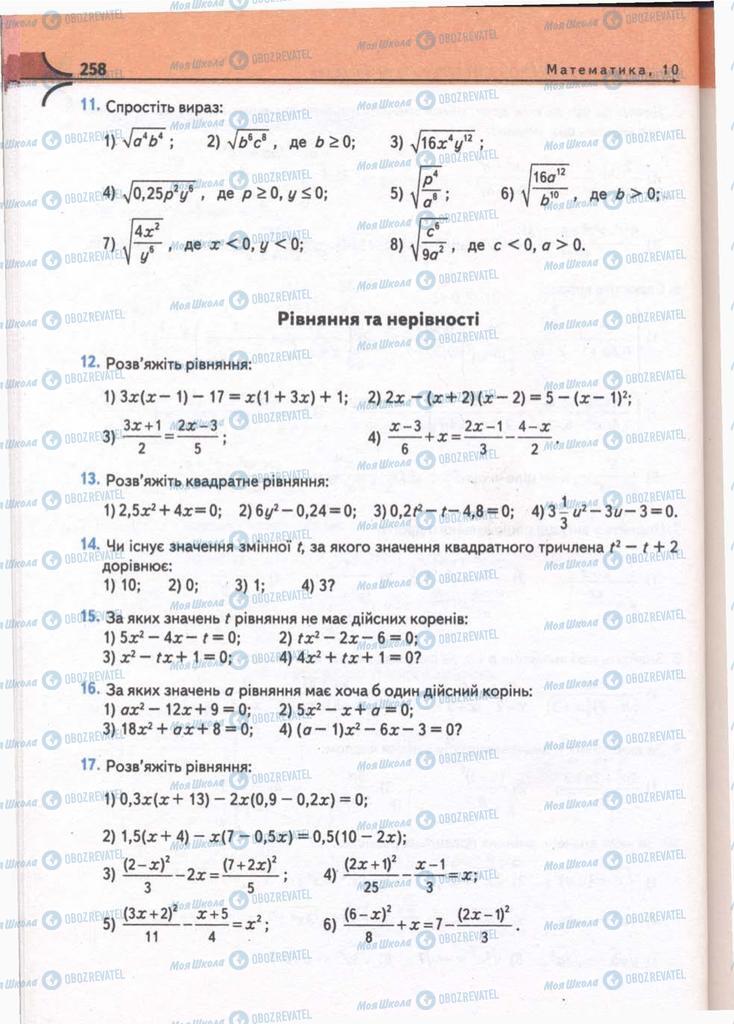 258
Математика, 10
11. Спростіть вираз:
1) √(a⁴b⁴) ; 2) √(b⁶c⁸) , де b ≥ 0; 3) √(16x⁴y¹²) ;
4) √(0,25p²y⁶) , де p ≥ 0, y ≤ 0; 5) √(p⁴/a⁸) ; 6) √(16a¹²/b¹⁰) , де b > 0;
7) √(4x²/y⁶) , де x < 0, y < 0; 8) √(c⁶/9a²) , де c < 0, a > 0.
Рівняння та нерівності
12. Розв’яжіть рівняння:
1) 3x(x – 1) – 17 = x(1 + 3x) + 1; 2) 2x – (x + 2)(x – 2) = 5 – (x – 1)²;
3) (3x+1)/2 = (2x–3)/5 ; 4) (x–3)/6 + x = (2x–1)/3 – (4–x)/2 .
13. Розв’яжіть квадратне рівняння:
1) 2,5x² + 4x = 0; 2) 6y² – 0,24 = 0; 3) 0,2t² – t – 4,8 = 0; 4) 3 1/3 u² – 3u – 3 = 0.
14. Чи існує значення змінної t, за якого значення квадратного тричлена t² – t + 2
дорівнює:
1) 10; 2) 0; 3) 1; 4) 3?
15. За яких значень t рівняння не має дійсних коренів:
1) 5x² – 4x – t = 0; 2) tx² – 2x – 6 = 0;
3) x² – tx + 1 = 0; 4) 4x² + tx + 1 = 0?
16. За яких значень a рівняння має хоча б один дійсний корінь:
1) ax² – 12x + 9 = 0; 2) 5x² – x + a = 0;
3) 18x² + ax + 8 = 0; 4) (a – 1)x² – 6x – 3 = 0?
17. Розв’яжіть рівняння:
1) 0,3x(x + 13) – 2x(0,9 – 0,2x) = 0;
2) 1,5(x + 4) – x(7 – 0,5x) = 0,5(10 – 2x);
3) (2–x)²/3 – 2x = (7+2x)²/5 ; 4) (2x+1)²/25 – (x–1)/3 = x;
5) (3x+2)²/11 – (x+5)/4 = x² ; 6) (6–x)²/8 + x = 7 – (2x–1)²/3 .